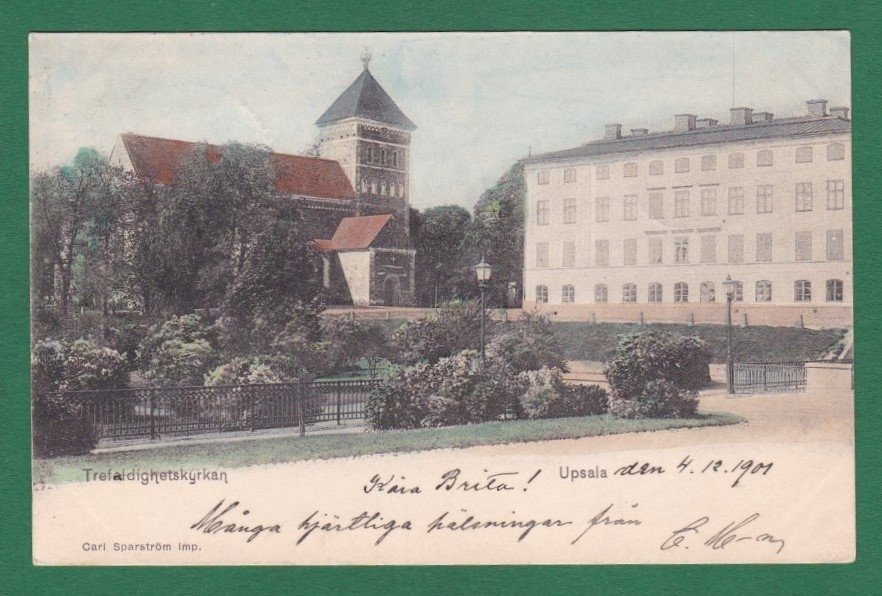 Trefaldighetskyrkan
Upsala den 4.12.1901
Kära Brita!
Många hjärtliga hälsningar från
C. M-n
Carl Sparström Imp.